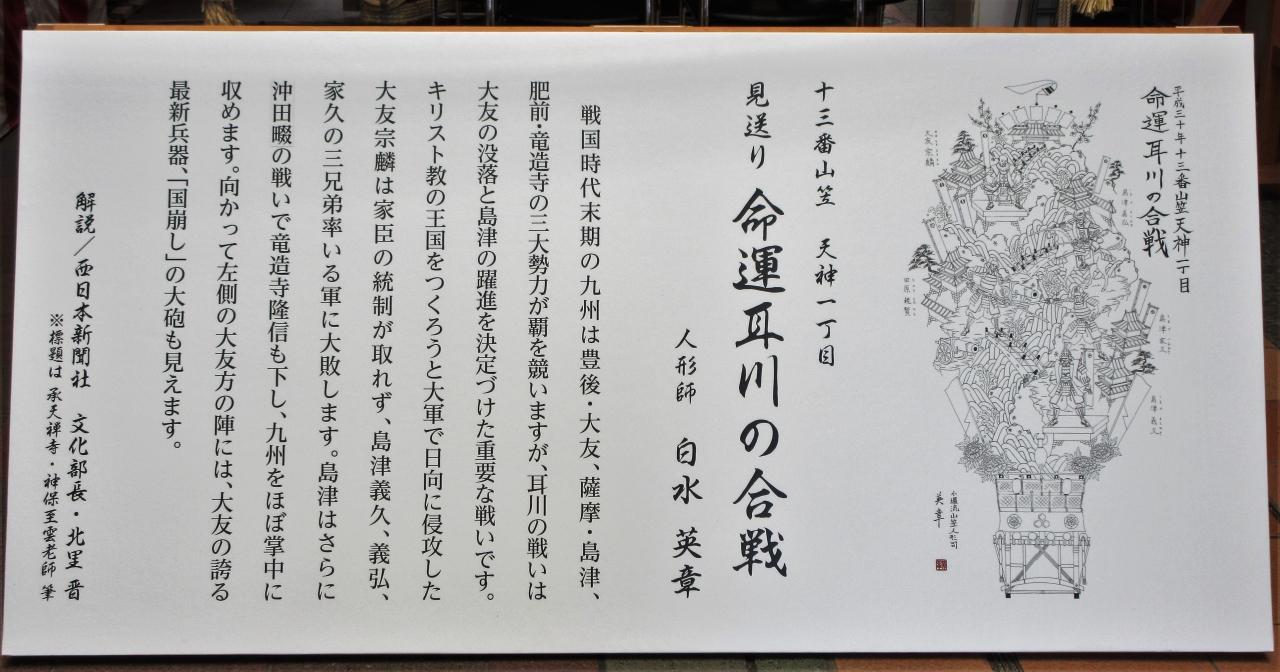 平成三十年十三番山笠天神一丁目
命運耳川の合戦
大友宗麟
島津義弘
田原親賢
島津家久
島津義久
小堀流山笠人形司
英章
十三番山笠 天神一丁目
見送り 命運耳川の合戦
人形師 白水英章
戦国時代末期の九州は豊後・大友、薩摩・島津、
肥前・竜造寺の三大勢力が覇を競いますが、耳川の戦いは
大友の没落と島津の躍進を決定づけた重要な戦いです。
キリスト教の王国をつくろうと大軍で日向に侵攻した
大友宗麟は家臣の統制が取れず、島津義久、義弘、
家久の三兄弟率いる軍に大敗します。島津はさらに
沖田畷の戦いで竜造寺隆信も下し、九州をほぼ掌中に
収めます。向かって左側の大友方の陣には、大友の誇る
最新兵器、「国崩し」の大砲も見えます。
解説／西日本新聞社 文化部長・北里晋
※標題は 承天禅寺・神保至雲老師 筆